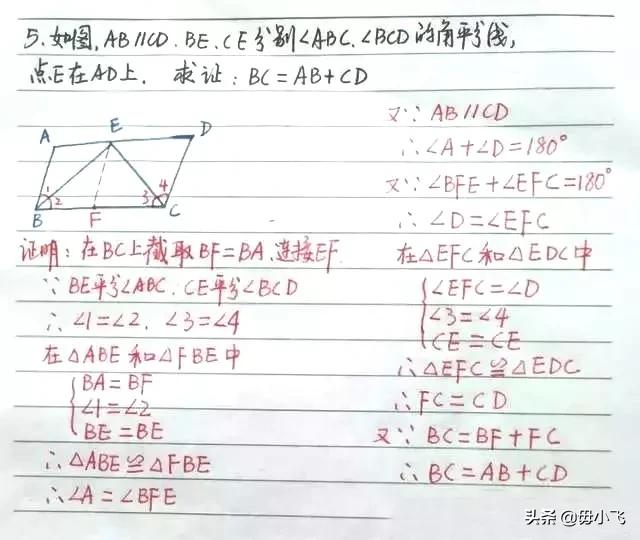 5.如图,AB∥CD.BE、CE分别∠ABC.∠BCD的角平分线,
点E在AD上. 求证:BC=AB+CD
A
E
D
B
1
2
F
3
4
C
证明:在BC上截取BF=BA.连接EF.
∵ BE平分∠ABC.CE平分∠BCD
∴∠1=∠2.∠3=∠4
在△ABE和△FBE中
BA=BF
∠1=∠2
BE=BE
∴△ABE≌△FBE
∴∠A=∠BFE
又∵ AB∥CD
∴∠A+∠D=180°
又∵∠BFE+∠EFC=180°
∴∠D=∠EFC
在△EFC和△EDC中
∠EFC=∠D
∠3=∠4
CE=CE
∴△EFC≌△EDC
∴FC=CD
又∵ BC=BF+FC
∴ BC=AB+CD
头条@毋小飞